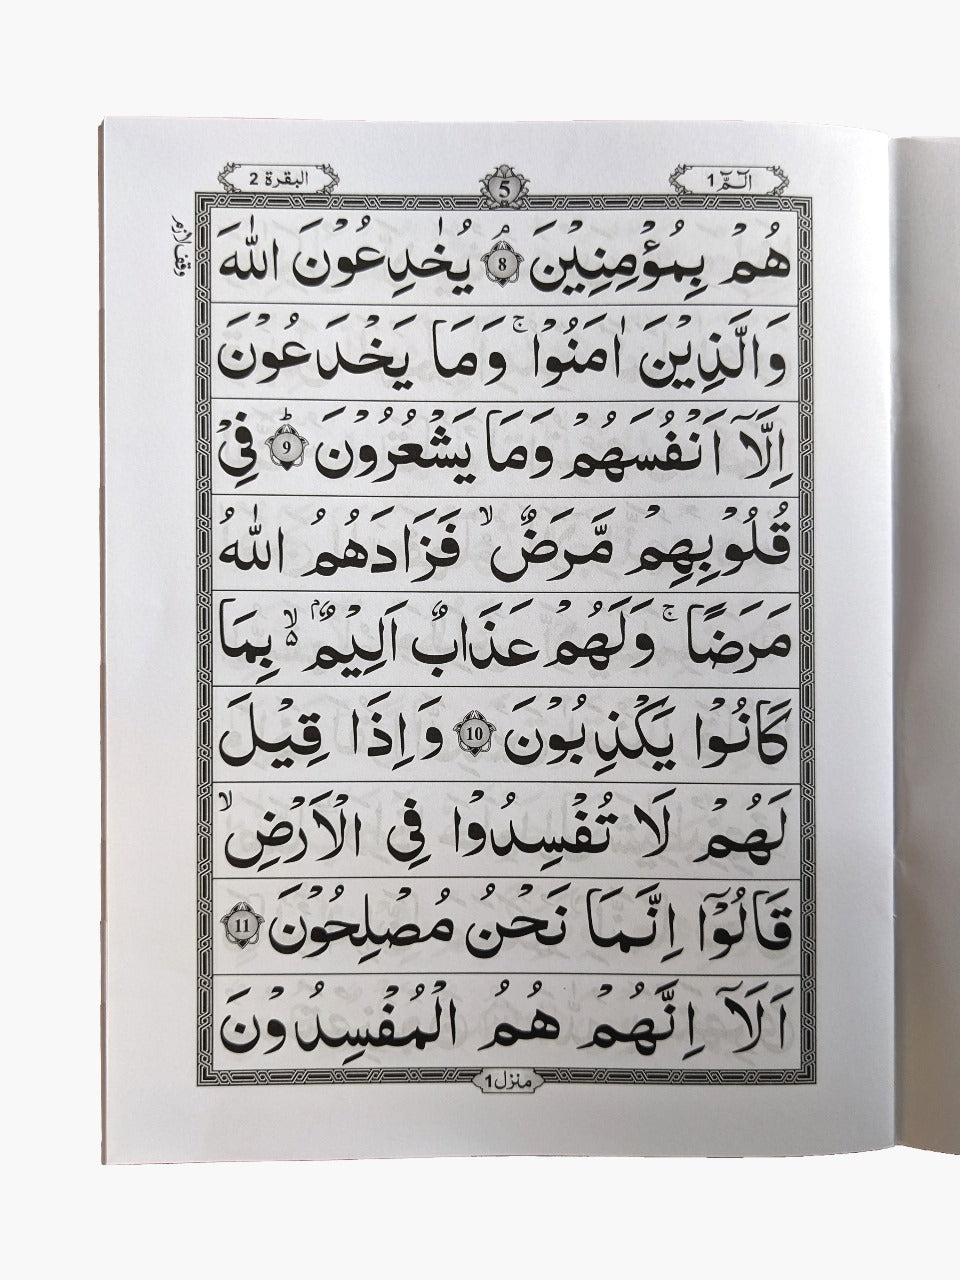 الٓمّٓ 1
5
البقرة 2
وقف لازم
هُمْ بِمُؤْمِنِيْنَ ۘ 8 يُخٰدِعُوْنَ اللّٰهَ
وَالَّذِيْنَ اٰمَنُوْا ۚ وَمَا يَخْدَعُوْنَ
اِلَّآ اَنْفُسَهُمْ وَمَا يَشْعُرُوْنَ ؕ 9 فِيْ
قُلُوْبِهِمْ مَّرَضٌ ۙ فَزَادَهُمُ اللّٰهُ
مَرَضًا ۚ وَلَهُمْ عَذَابٌ اَلِيْمٌۢ ۙ۵ بِمَا
كَانُوْا يَكْذِبُوْنَ 10 وَاِذَا قِيْلَ
لَهُمْ لَا تُفْسِدُوْا فِى الْاَرْضِ ۙ
قَالُوْٓا اِنَّمَا نَحْنُ مُصْلِحُوْنَ 11
اَلَآ اِنَّهُمْ هُمُ الْمُفْسِدُوْنَ
منزل 1